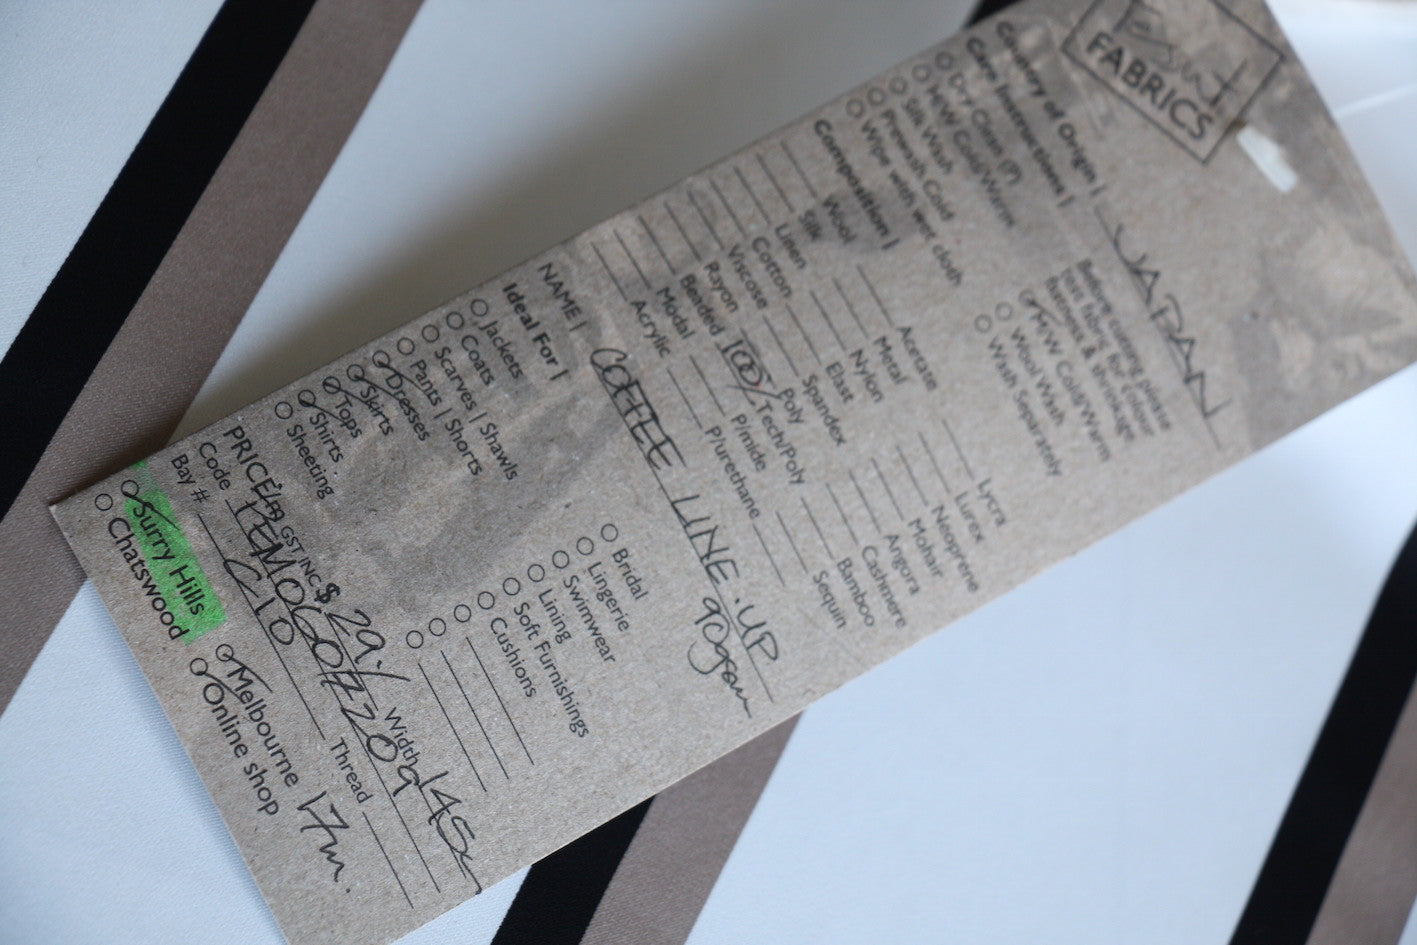 FABRICS
Country of Origin | JAPAN
Care Instructions |
Dry Clean (P)
H/W Cold/Warm
Silk Wash
Prewash Cold
Wipe with wet cloth
Before cutting please
test fabric for colour
fastness & shrinkage
M/W Cold/Warm
Wool Wash
Wash Separately
Composition |
Wool
Silk
Linen
Cotton
Viscose
Rayon
Beaded
Modal
Acrylic
Acetate
Metal
Nylon
Elast
Spandex
Poly
100% Tech/Poly
P/mide
P/urethane
Lycra
Lurex
Neoprene
Mohair
Angora
Cashmere
Bamboo
Sequin
NAME | COFFEE LINE.UP
90gsm
Ideal For |
Jackets
Coats
Scarves | Shawls
Pants | Shorts
Dresses
Skirts
Tops
Shirts
Sheeting
Bridal
Lingerie
Swimwear
Lining
Soft Furnishings
Cushions
PRICE/ GST INC $ 29. Width 145
Code
Bay # C10 Thread
Surry Hills
Chatswood
Melbourne 17m.
Online shop